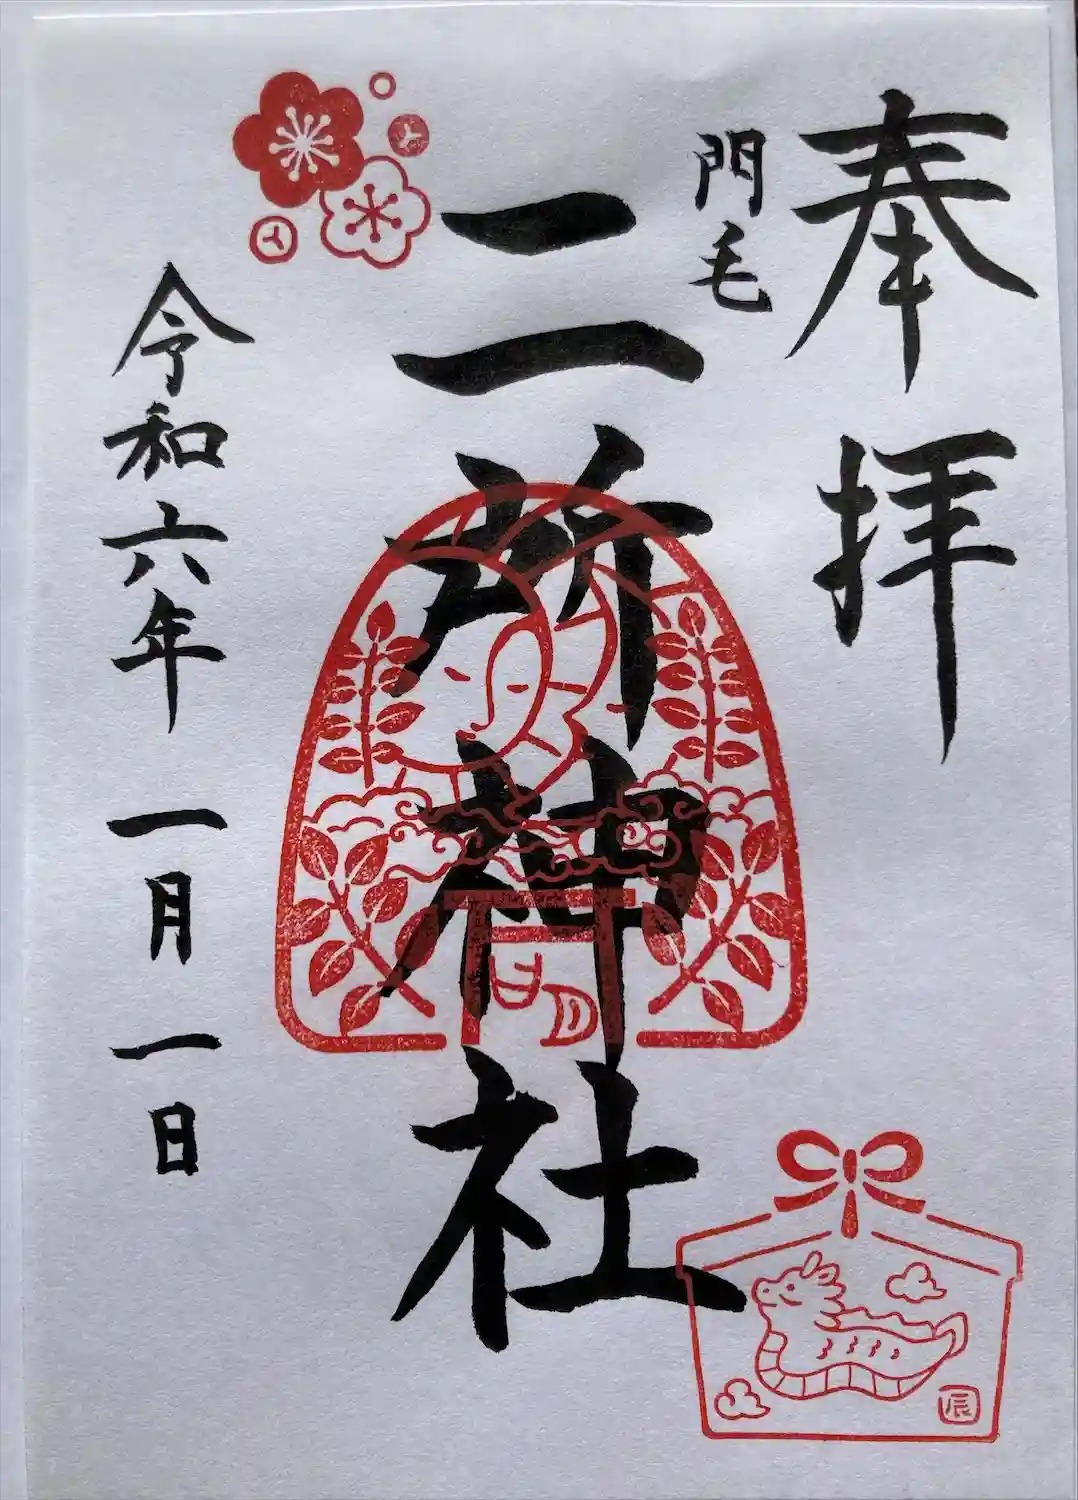 奉拝
門毛
二所神社
令和六年一月一日
辰